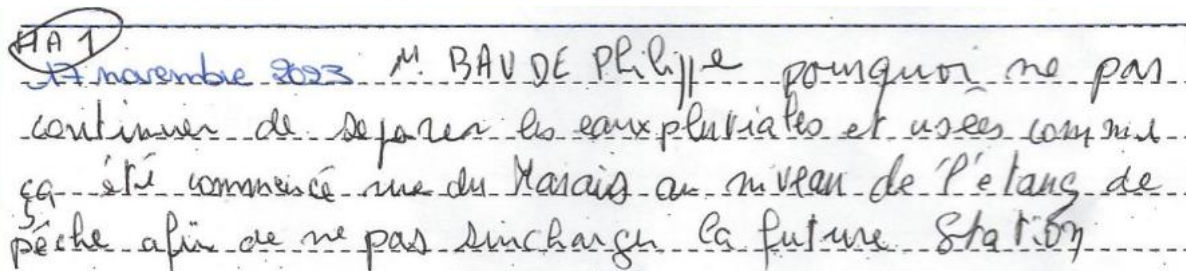 HA 1
17 novembre 2023 M. BAUDE Philippe pourquoi ne pas
continuer de séparer les eaux pluviales et usées comme
ça été commencé rue du Marais au niveau de l'étang de
pêche afin de ne pas surcharger la future Station